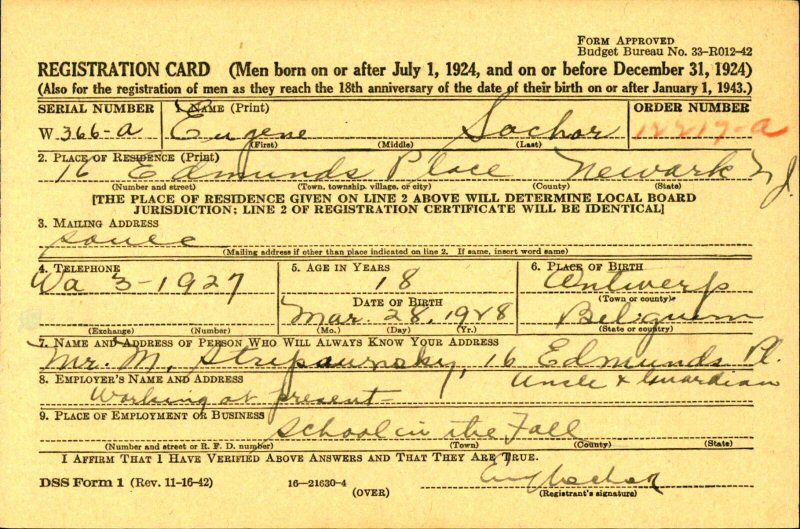 FORM APPROVED
Budget Bureau No. 33-R012-42
REGISTRATION CARD (Men born on or after July 1, 1924, and on or before December 31, 1924)
(Also for the registration of men as they reach the 18th anniversary of the date of their birth on or after January 1, 1943.)
SERIAL NUMBER 1. NAME (Print) ORDER NUMBER
W 366-a Eugene Sochor 12217-a
(First) (Middle) (Last)
2. PLACE OF RESIDENCE (Print)
16 Edmunds Place Newark N J.
(Number and street) (Town, township, village, or city) (County) (State)
[THE PLACE OF RESIDENCE GIVEN ON LINE 2 ABOVE WILL DETERMINE LOCAL BOARD
JURISDICTION; LINE 2 OF REGISTRATION CERTIFICATE WILL BE IDENTICAL]
3. MAILING ADDRESS
same
(Mailing address if other than place indicated on line 2. If same, insert word same)
4. TELEPHONE 5. AGE IN YEARS 6. PLACE OF BIRTH
Wa 3-1927 18 Antwerp
(Town or county)
DATE OF BIRTH
Mar. 28, 1928 Belguim
(Exchange) (Number) (Mo.) (Day) (Yr.) (State or country)
7. NAME AND ADDRESS OF PERSON WHO WILL ALWAYS KNOW YOUR ADDRESS
Mr. M. 16 Edmunds Pl.
8. EMPLOYER'S NAME AND ADDRESS Uncle & Guardian
Working at present-
9. PLACE OF EMPLOYMENT OR BUSINESS
School in the Fall
(Number and street or R. F. D. number) (Town) (County) (State)
I AFFIRM THAT I HAVE VERIFIED ABOVE ANSWERS AND THAT THEY ARE TRUE.
DSS Form 1 (Rev. 11-16-42) 16-21630-4
(OVER) (Registrant's signature)